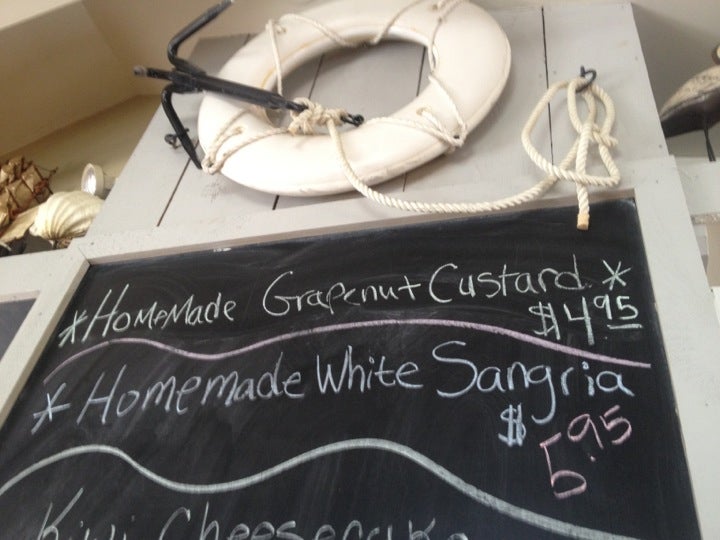 *HomeMade Grapenut Custard*
$4.95
* Homemade White Sangria
$5.95
Kiwi Cheesecake